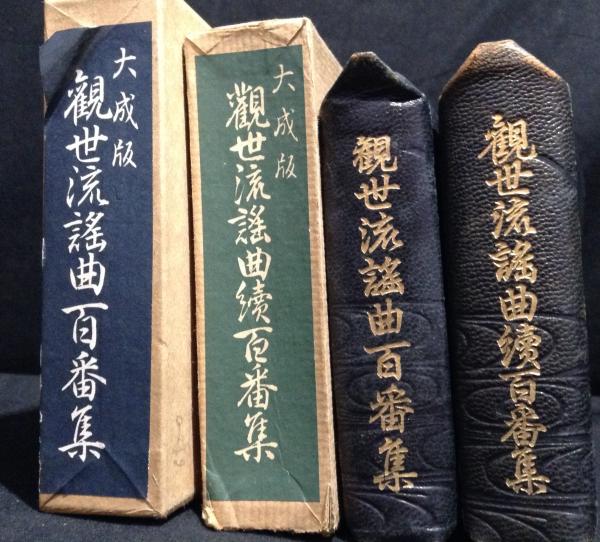 大成版
觀世流謠曲百番集
大成版
觀世流謠曲續百番集
觀世流謠曲百番集
觀世流謠曲續百番集